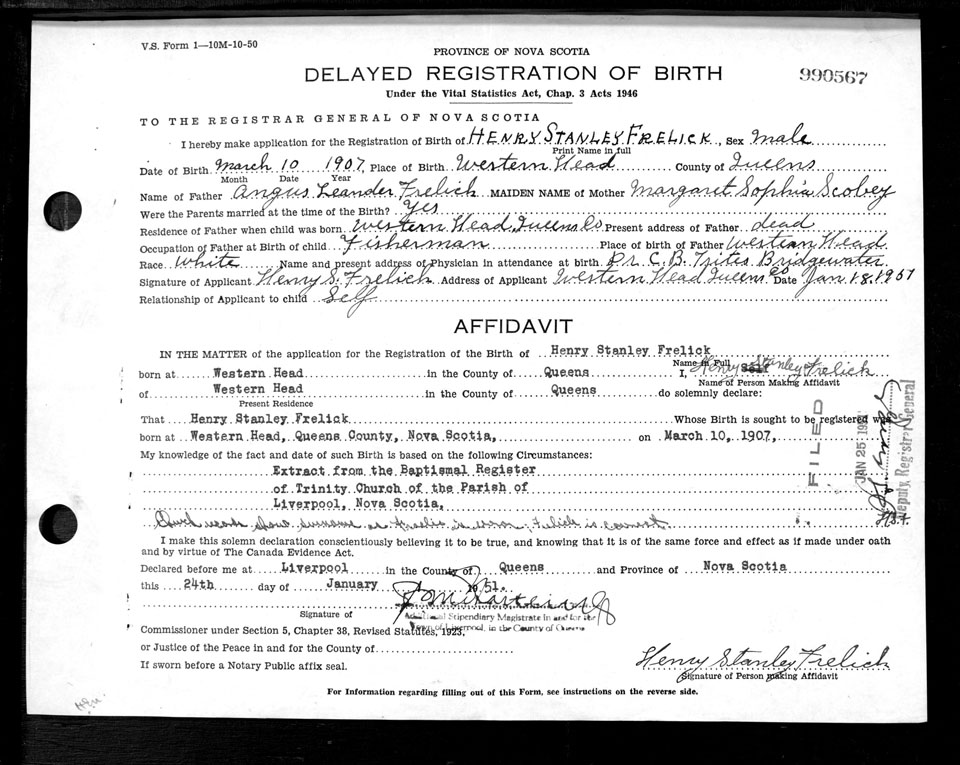 V.S. Form 1—10M-10-50
PROVINCE OF NOVA SCOTIA
DELAYED REGISTRATION OF BIRTH
990567
Under the Vital Statistics Act, Chap. 3 Acts 1946
TO THE REGISTRAR GENERAL OF NOVA SCOTIA
I hereby make application for the Registration of Birth of HENRY STANLEY FRELICK, Sex Male
Print Name in full
Date of Birth March 10 1907, Place of Birth Western Head County of Queens
Month Date Year
Name of Father Angus Leander Frelick MAIDEN NAME of Mother Margaret Sophia Scobey
Were the Parents married at the time of the Birth? Yes
Residence of Father when child was born Western Head, Queens Co Present address of Father dead
Occupation of Father at Birth of child Fisherman Place of birth of Father Western Head
Race White Name and present address of Physician in attendance at birth Dr. C. B. Trites Bridgewater
Signature of Applicant Henry S. Frelick Address of Applicant Western Head Queens Co Date Jan 18. 1951
Relationship of Applicant to child Self
AFFIDAVIT
IN THE MATTER of the application for the Registration of the Birth of Henry Stanley Frelick
Name in Full
born at Western Head in the County of Queens I, Henry Stanley Frelick
Name of Person Making Affidavit
of Western Head in the County of Queens do solemnly declare:
Present Residence
That Henry Stanley Frelick Whose Birth is sought to be registered was
born at Western Head, Queens County, Nova Scotia, on March 10, 1907,
My knowledge of the fact and date of such Birth is based on the following Circumstances:
Extract from the Baptismal Register
of Trinity Church of the Parish of
Liverpool, Nova Scotia,
Church records show surname as in error; is correct.
FILED
JAN 25
Deputy Registrar General
I make this solemn declaration conscientiously believing it to be true, and knowing that it is of the same force and effect as if made under oath
and by virtue of The Canada Evidence Act.
Declared before me at Liverpool in the County of Queens and Province of Nova Scotia
this 24th day of January 1951.
Signature of
Additional Stipendiary Magistrate in and for the
Town of Liverpool, in the County of Queens
Commissioner under Section 5, Chapter 38, Revised Statutes, 1923,
or Justice of the Peace in and for the County of
If sworn before a Notary Public affix seal.
Henry Stanley Frelick
Signature of Person making Affidavit
For Information regarding filling out of this Form, see instructions on the reverse side.